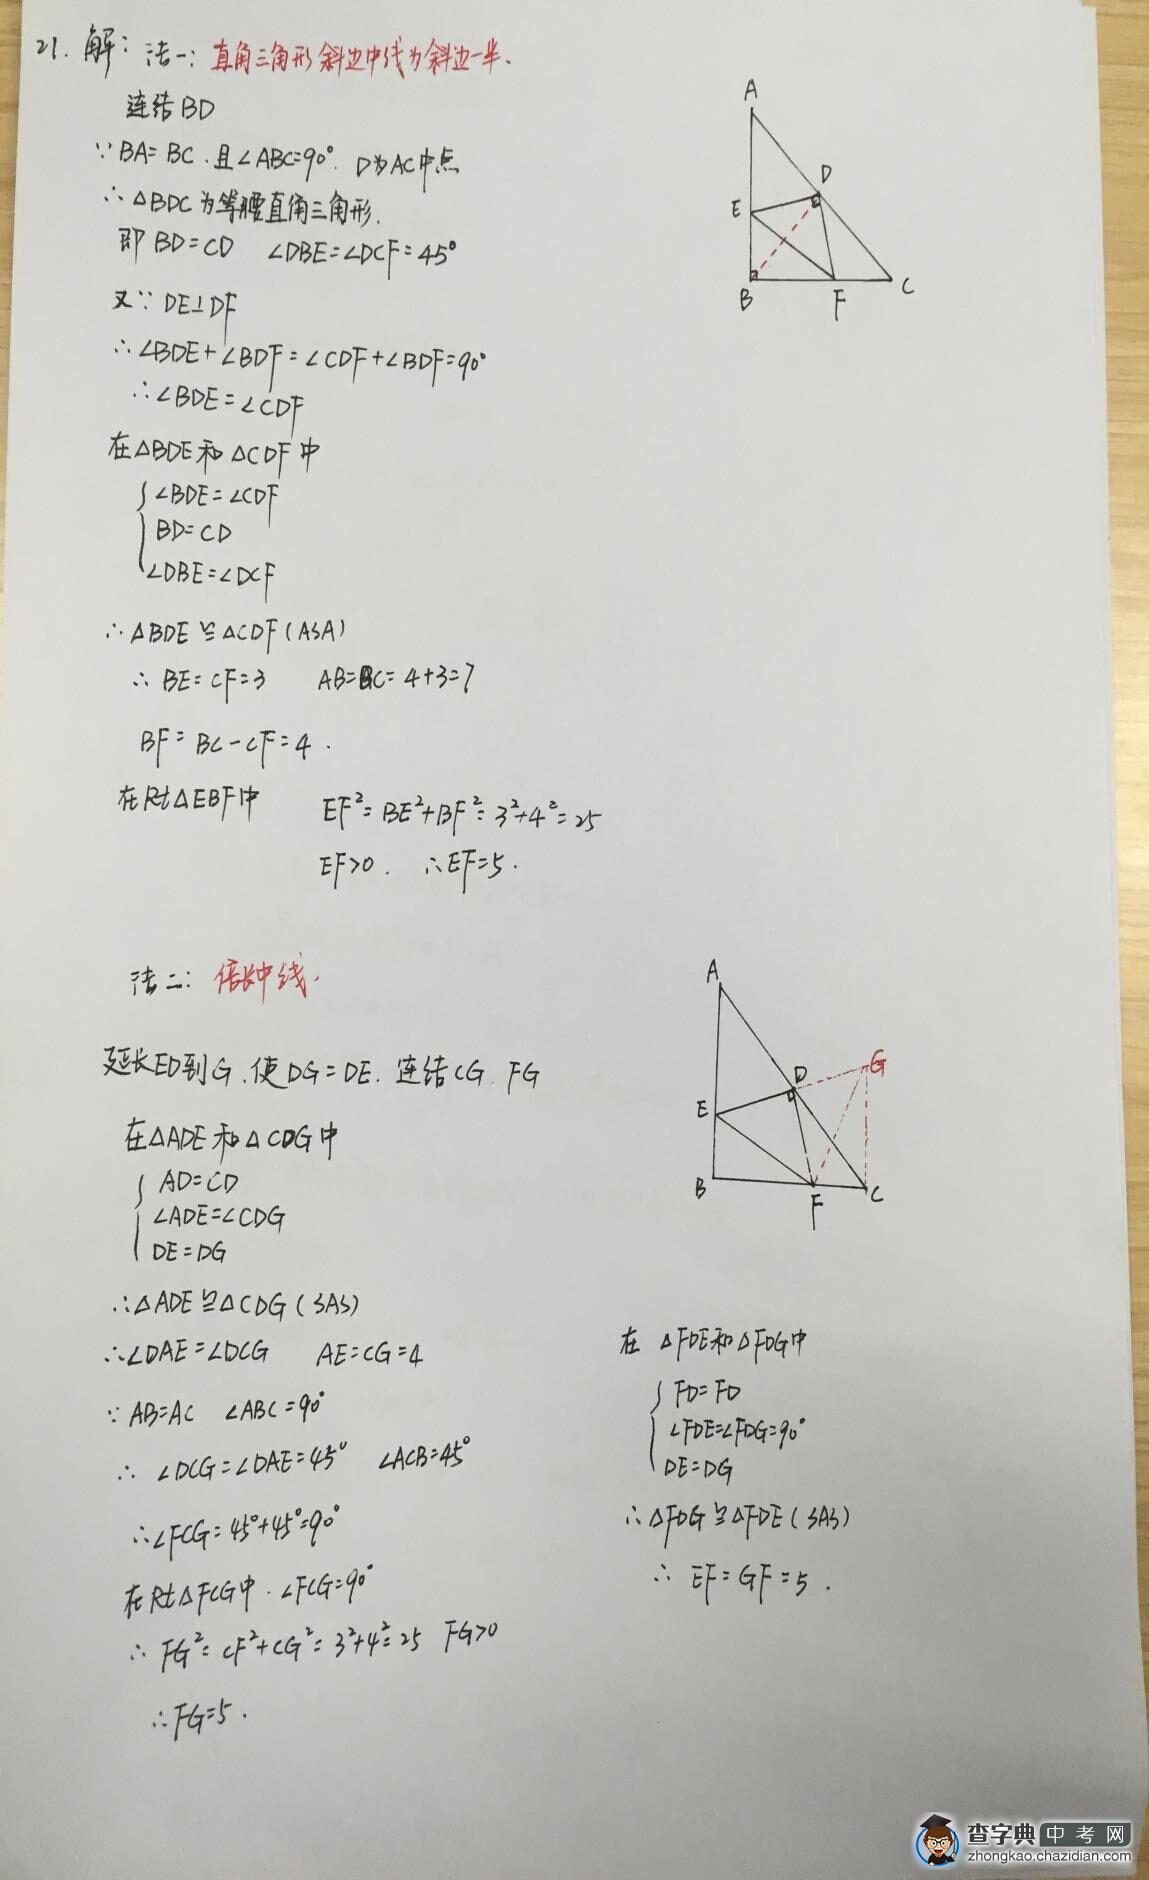 21. 解: 法一: 直角三角形斜边中线为斜边一半.
连结BD
∵BA=BC.且∠ABC=90°. D为AC中点
∴△BDC为等腰直角三角形.
即BD=CD ∠DBE=∠DCF=45°
又∵DE⊥DF
∴∠BDE+∠BDF=∠CDF+∠BDF=90°
∴∠BDE=∠CDF
在△BDE和△CDF中
∠BDE=∠CDF
BD=CD
∠DBE=∠DCF
∴△BDE≌△CDF(ASA)
∴BE=CF=3 AB=BC=4+3=7
BF=BC-CF=4.
在Rt△EBF中 EF²=BE²+BF²=3²+4²=25
EF>0. ∴EF=5.
A
D
E
B
F
C
法二: 倍长中线.
延长ED到G.使DG=DE.连结CG.FG
在△ADE和△CDG中
AD=CD
∠ADE=∠CDG
DE=DG
∴△ADE≌△CDG(SAS)
∴∠DAE=∠DCG AE=CG=4
∵AB=AC ∠ABC=90°
∴∠DCG=∠DAE=45° ∠ACB=45°
∴∠FCG=45°+45°=90°
在Rt△FCG中.∠FCG=90°
∴FG²=CF²+CG²=3²+4²=25 FG>0
∴FG=5.
A
D
G
E
B
F
C
在△FDE和△FDG中
FD=FD
∠FDE=∠FDG=90°
DE=DG
∴△FDG≌△FDE(SAS)
∴EF=GF=5.
查字典中考网
zhongkao.chazidian.com